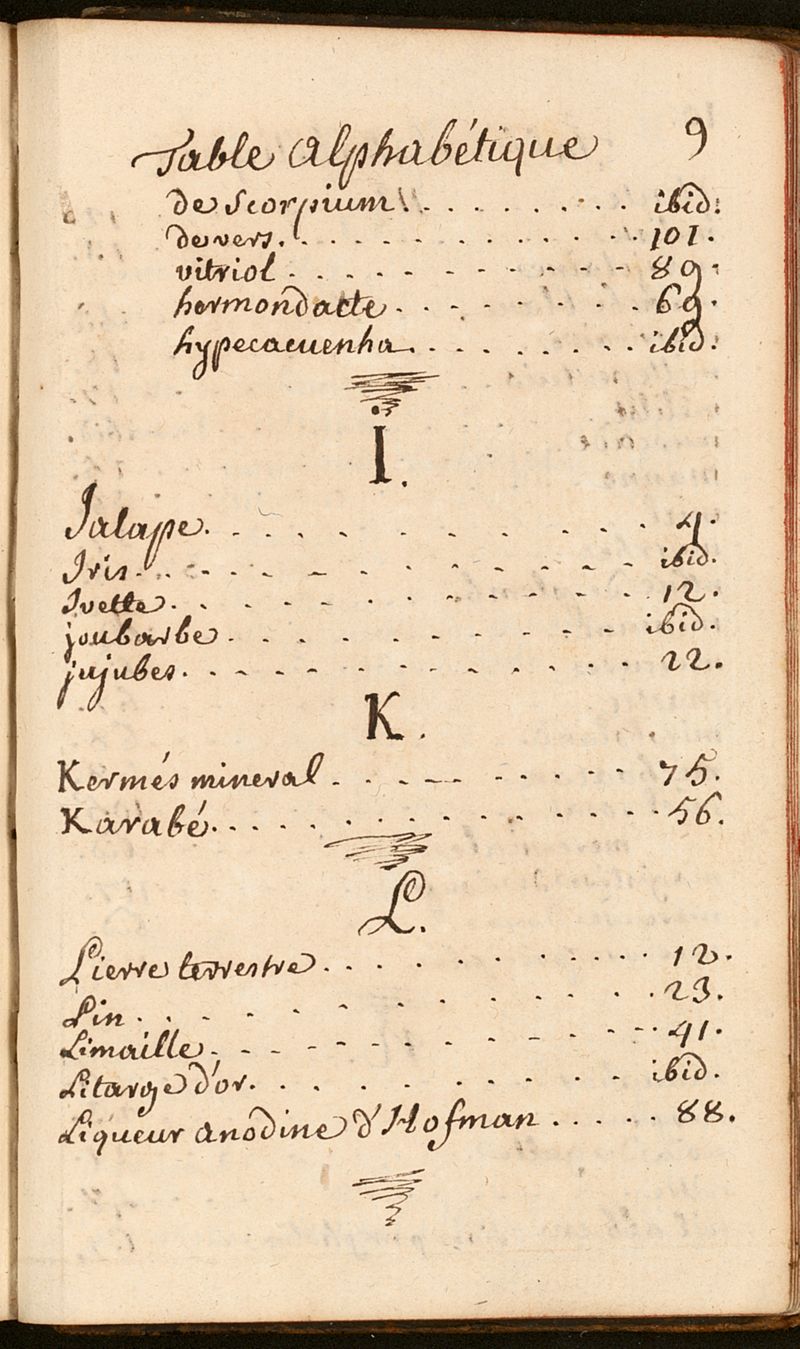 Table Alphabétique 9
de Scorpium. . . . . . . . . ibid.
de vers. . . . . . . . . . . . 101.
vitriol . . . . . . . . . . . 89.
hermondacte . . . . . . . . 69.
hypecacuenha. . . . . . . . ibid.
I.
Jalape. . . . . . . . . . . 4.
Iris. . . . . . . . . . . . . ibid.
Ivette. . . . . . . . . . . . 12.
joubarbe . . . . . . . . . . ibid.
jujubes. . . . . . . . . . . 22.
K.
Kermés mineral . . . . . . . . 75.
Karabé. . . . . . . . . . . . 56.
L.
Lierre terrestre. . . . . . . . . 12.
Lin . . . . . . . . . . . . 23.
Limaille. . . . . . . . . . . 41.
Litarge d'or. . . . . . . . . ibid.
Liqueur anodine d'Hofman . . . . . 88.